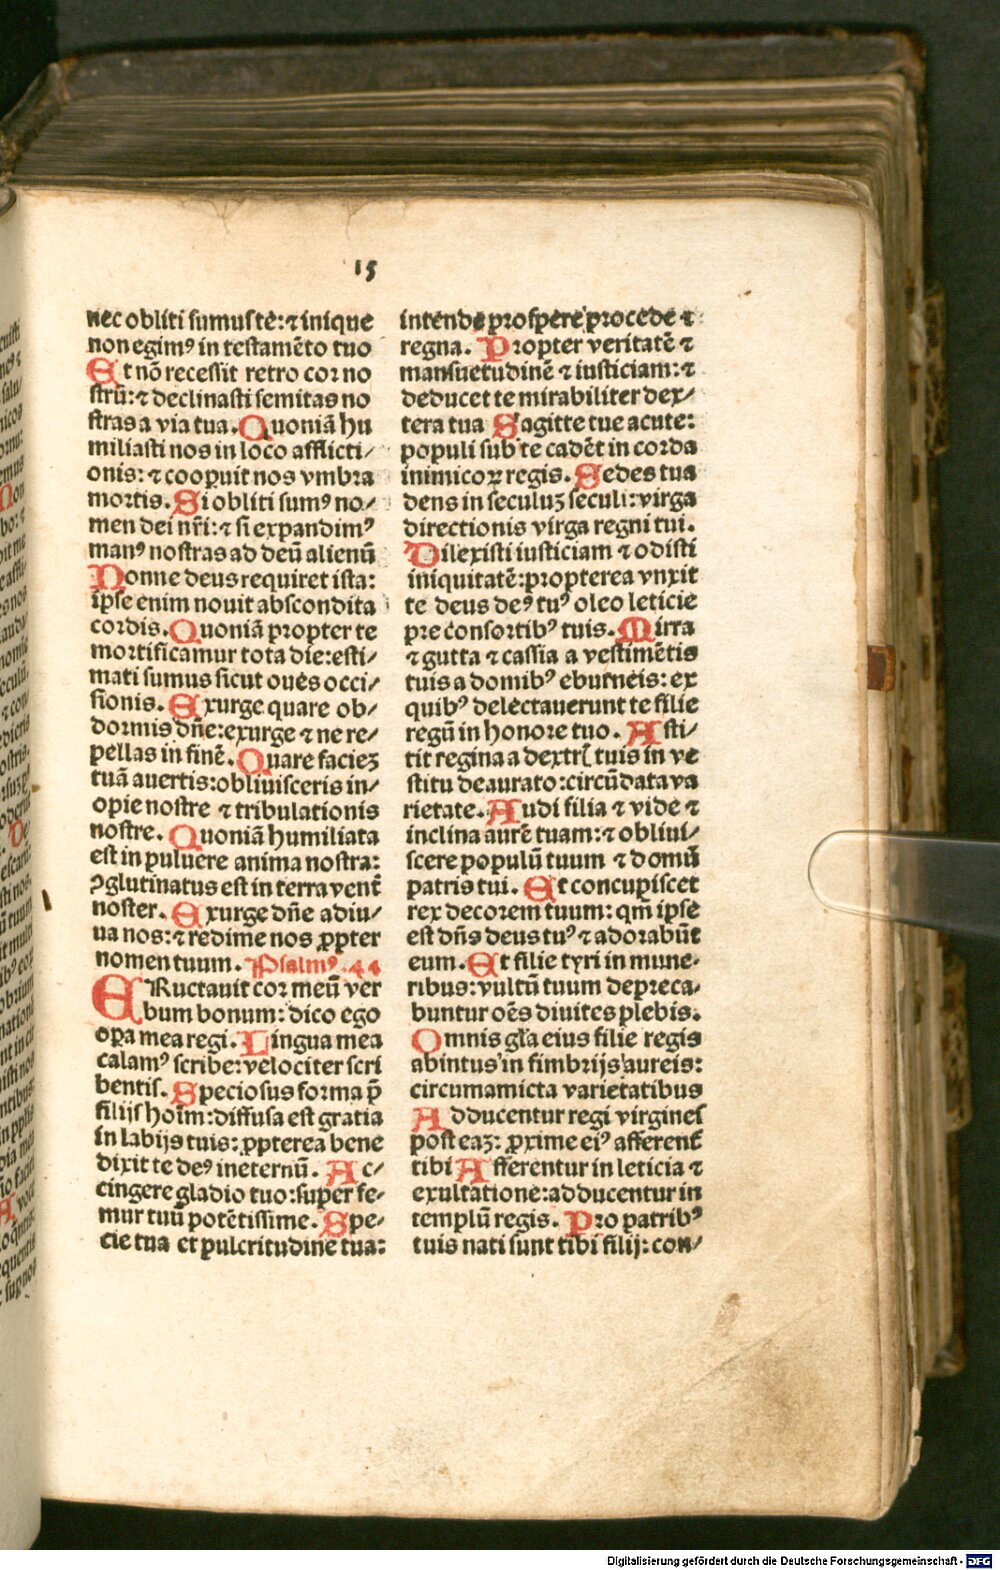 15
nec obliti sumus te: ⁊ inique
non egimꝰ in testamẽto tuo
Et nõ recessit retro cor no
strũ: ⁊ declinasti semitas no
stras a via tua. Quoniã hu
miliasti nos in loco afflicti/
onis: ⁊ coopuit nos vmbra
mortis. Si obliti sumꝰ no/
men dei nr̃i: ⁊ si expandimꝰ
manꝰ nostras ad deũ alienũ
Nonne deus requiret ista:
ipse enim nouit abscondita
cordis. Quoniã propter te
mortificamur tota die: esti/
mati sumus sicut oues occi/
sionis. Exurge quare ob/
dormis dñe: exurge ⁊ ne re/
pellas in finẽ. Quare facieꝫ
tuã auertis: obliuisceris in/
opie nostre ⁊ tribulationis
nostre. Quoniã humiliata
est in puluere anima nostra:
ꝯglutinatus est in terra vent̃
noster. Exurge dñe adiu/
ua nos: ⁊ redime nos ꝓpter
nomen tuum. Psalmꝰ .44
ERuctauit cor meũ ver
bum bonum: dico ego
oꝑa mea regi. Lingua mea
calamꝰ scribe: velociter scri
bentis. Speciosus forma p̃
filijs hoĩm: diffusa est gratia
in labijs tuis: ꝓpterea bene
dixit te deꝰ ineternũ. Ac/
cingere gladio tuo: super fe/
mur tuũ potẽtissime. Spe/
cie tua et pulcritudine tua:
intende prospere procede ⁊
regna. Propter veritatẽ ⁊
mansuetudinẽ ⁊ iusticiam: ⁊
deducet te mirabiliter dex/
tera tua Sagitte tue acute:
populi sub te cadẽt in corda
inimicoꝝ regis. Sedes tua
dens in seculuꝫ seculi: virga
directionis virga regni tui.
Dilexisti iusticiam ⁊ odisti
iniquitatẽ: propterea vnxit
te deus deꝰ tuꝰ oleo leticie
pre consortibꝰ tuis. Mirra
⁊ gutta ⁊ cassia a vestimẽtis
tuis a domibꝰ eburneis: ex
quibꝰ delectauerunt te filie
regũ in honore tuo. Asti/
tit regina a dextrl̃ tuis in ve
stitu deaurato: circũdata va
rietate. Audi filia ⁊ vide ⁊
inclina aurẽ tuam: ⁊ obliui/
scere populũ tuum ⁊ domũ
patris tui. Et concupiscet
rex decorem tuum: qm̃ ipse
est dñs deus tuꝰ ⁊ adorabũt
eum. Et filie tyri in mune-
ribus: vultũ tuum depreca-
buntur oẽs diuites plebis.
Omnis gl̃a eius filie regis
abintus in fimbrijs aureis:
circumamicta varietatibus
Adducentur regi virgines
post eaꝫ: ꝓxime eiꝰ afferent̃
tibi Afferentur in leticia ⁊
exultatione: adducentur in
templũ regis. Pro patribꝰ
tuis nati sunt tibi filij: con/
Digitalisierung gefördert durch die Deutsche Forschungsgemeinschaft - DFG